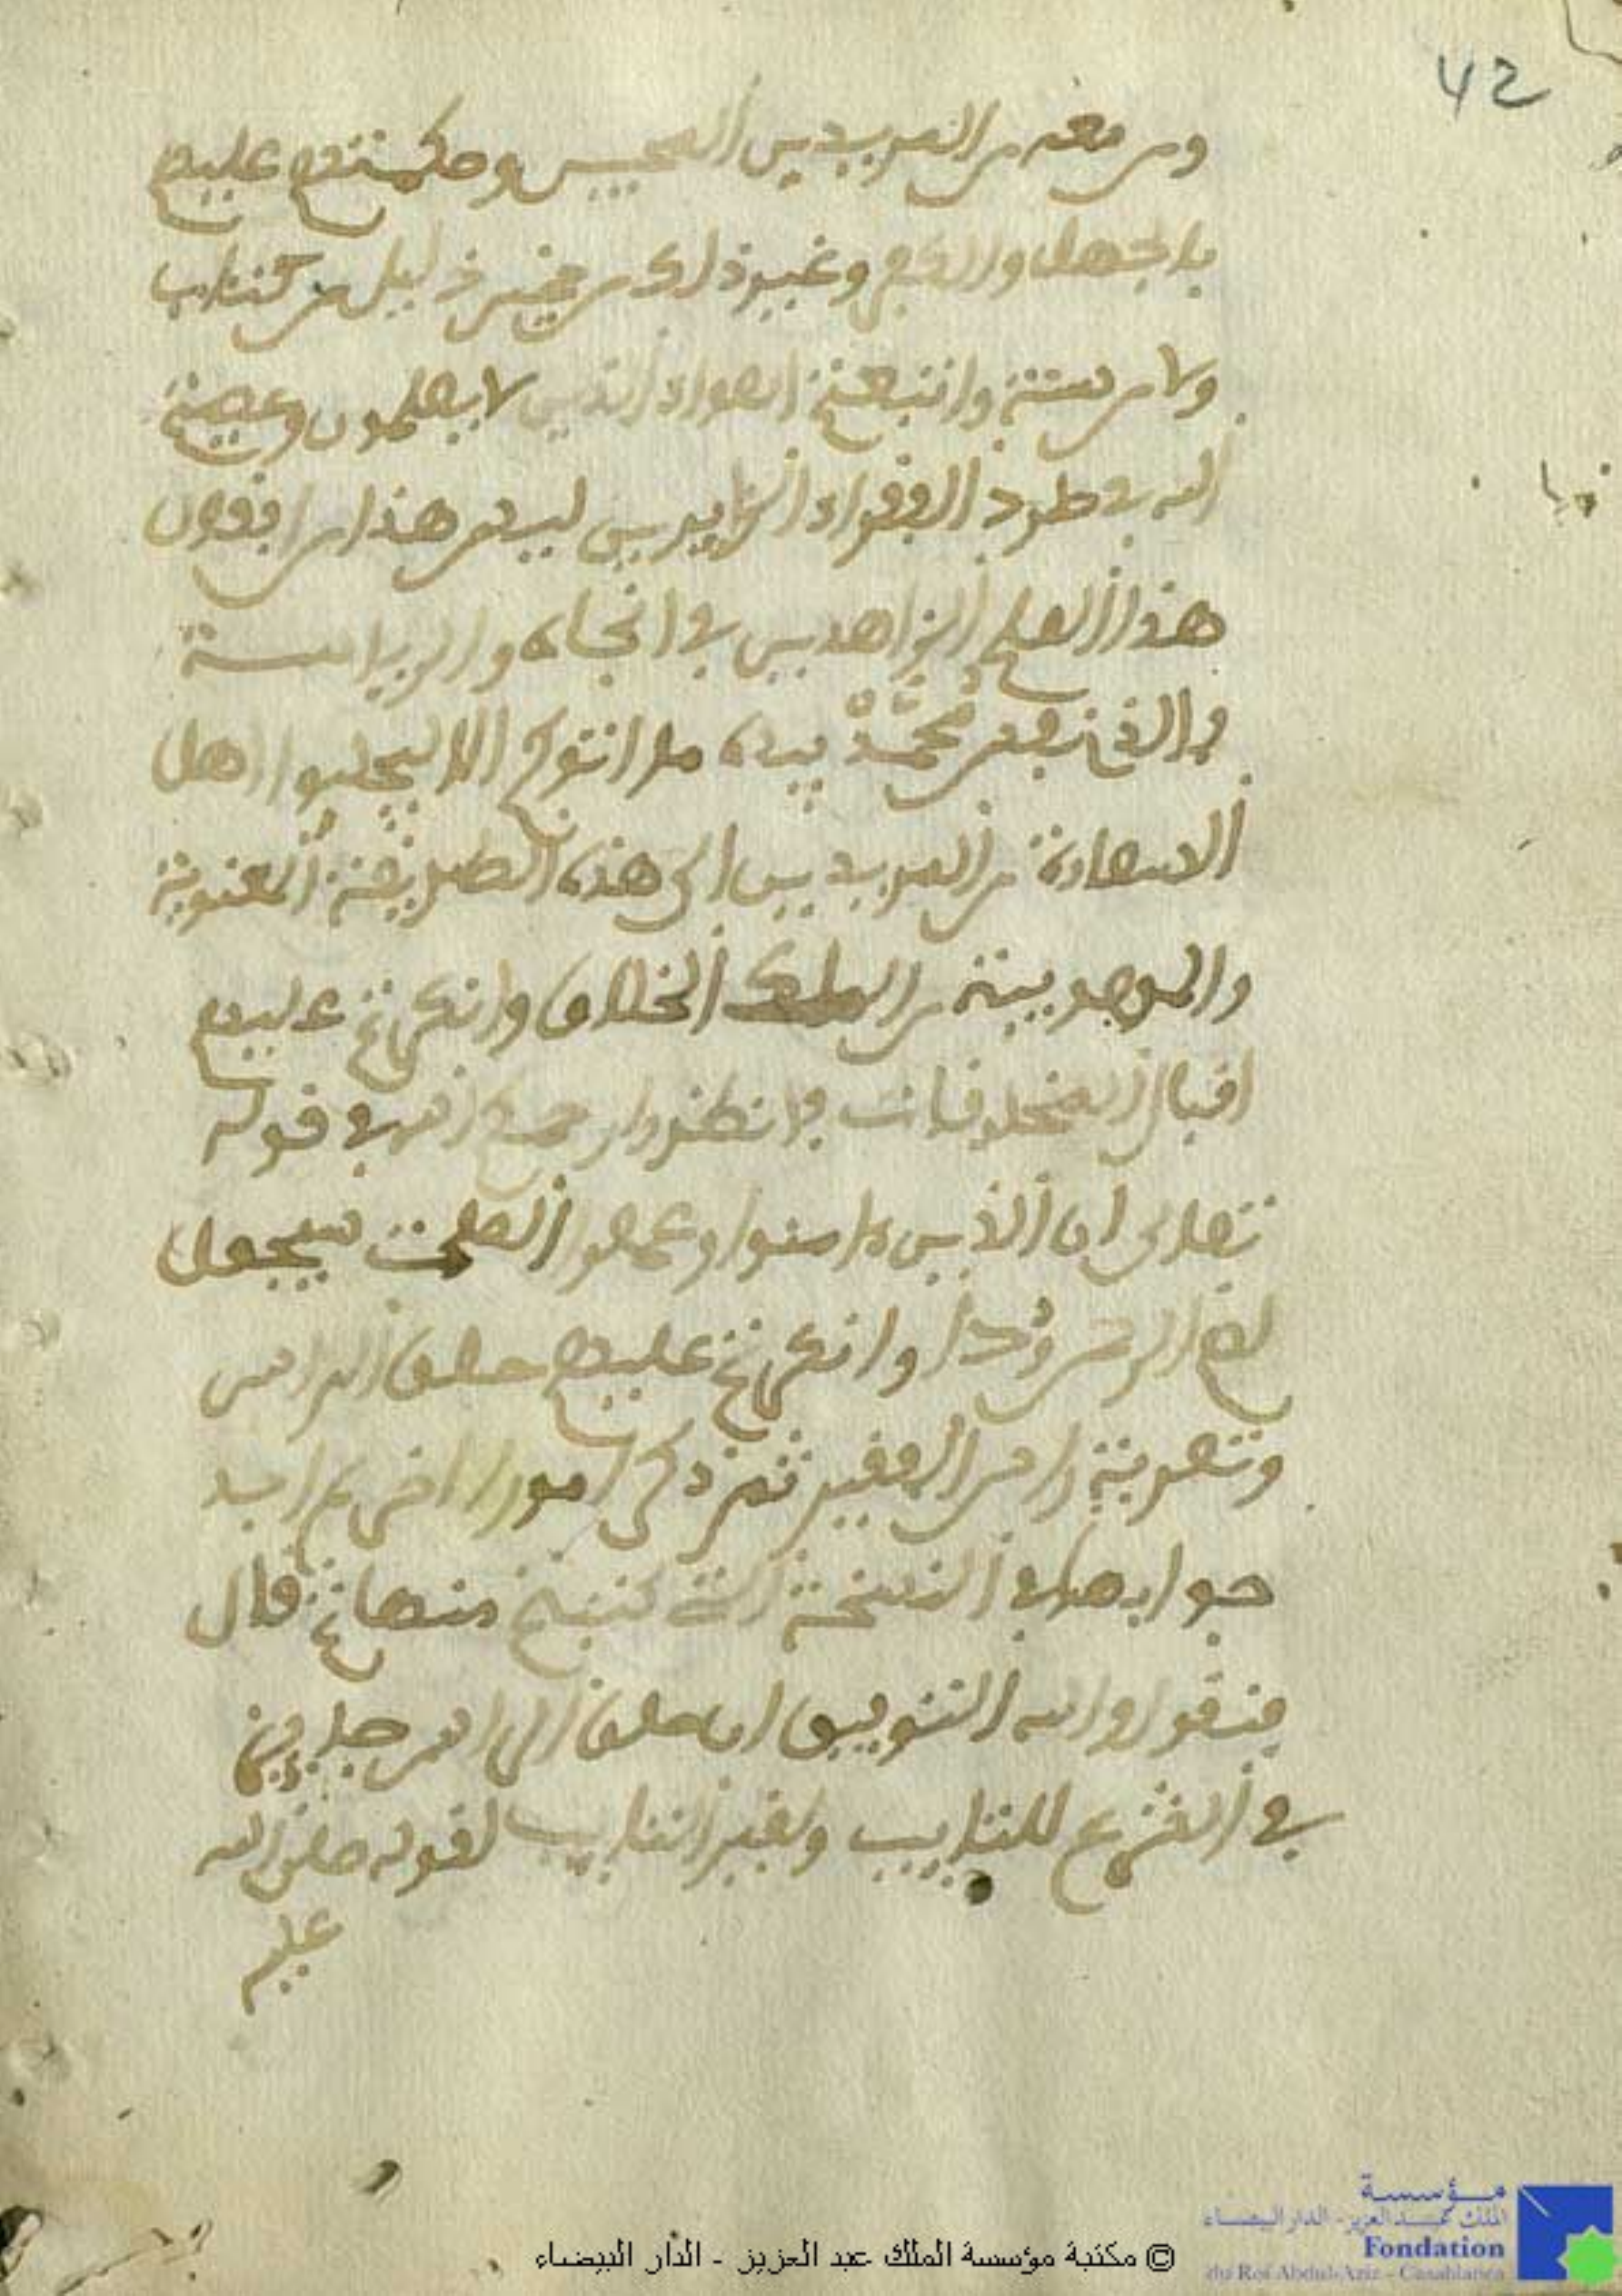 42
ومن معه من المريدين المحبين وحكمتم عليهم
بالجهل و وغير ذلك من غير دليل من كتاب
ولا من سنة واتبعتم اهواء الذين لا يعلمون وعصيتم
الله في طرد الفقراء الزايرين ليس هذا من افعال
هذا العلم الزاهدين في الجاه والرياسة
والذي نفس محمد بيده ما انتم الا ليجلبوا اهل
السعادة من المريدين الى هذه الطريقة المعنوية
والموهوبة من الملك الخلاق وانكرتم عليهم
اقبال المخلوقات وانظروا رحمكم الله في قوله
تعالى ان الذين ءامنوا وعملوا الصلحت سيجعل
لهم الرحمن ودا وانكرتم عليهم حلق الراس
وتعرية راس الفقير ثم ذكر امورا اخر لم اجد
جوابها في النسخة التي كتبت منها ثم قال
فنقول والله التوفيق ان حلق الراس جايز
في الشرع للتايب ولغير التايب لقوله صلى الله
عليه
© مكتبة مؤسسة الملك عبد العزيز - الدار البيضاء
مؤسسة
الملك عبد العزيز - الدار البيضاء
Fondation
du Roi Abdul-Aziz - Casablanca